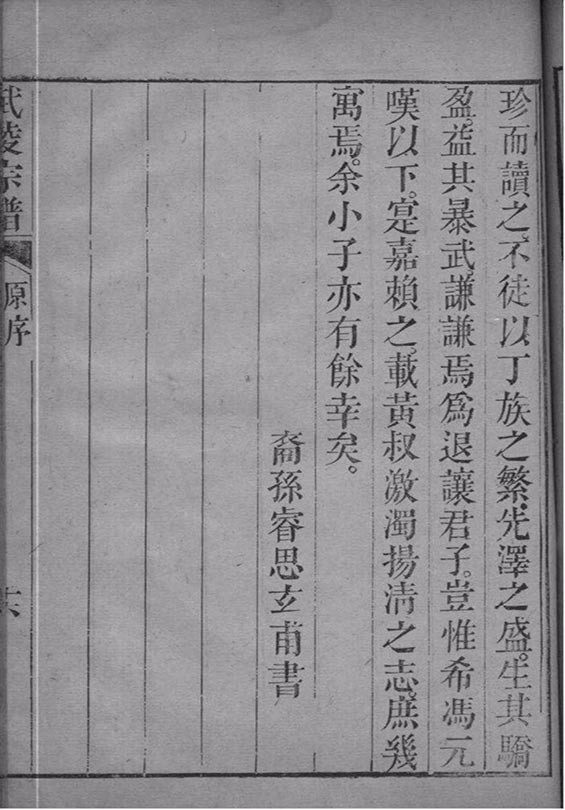 珍而讀之、不徒以丁族之繁、先澤之盛。生其驕
盈。益其暴武、謙謙焉爲退讓君子。豈惟希馮元
嘆以下。寔嘉賴之。載黃叔激濁揚清之志、庶幾
寓焉。余小子亦有餘幸矣。
裔孫睿思玄甫書
武陵宗譜
原序
六